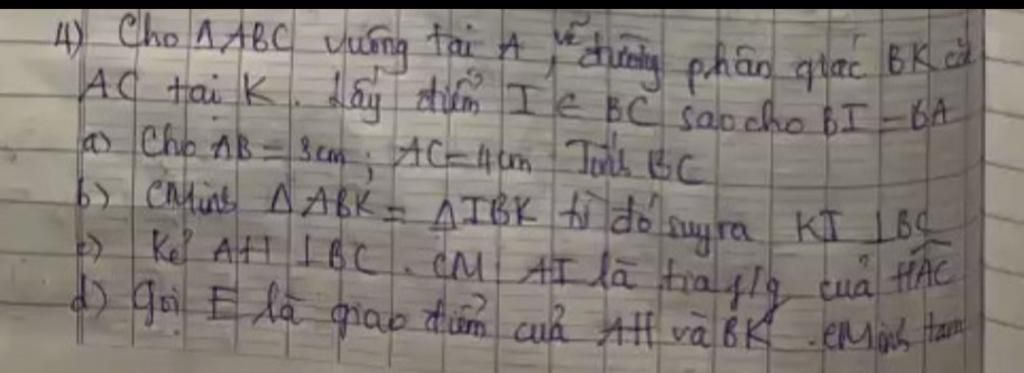 4) Cho ΔABC vuông tại A, vẽ đường phân giác BK cắt
AC tại K. Lấy điểm I ∈ BC sao cho BI = BA
a) Cho AB = 3cm; AC = 4cm Tính BC
b) CMinh ΔABK = ΔIBK từ đó suy ra KI ⊥ BC
c) Kẻ AH ⊥ BC. CM AI là tia f/g của HAC
d) Gọi E là giao điểm của AH và BK. CMinh tam